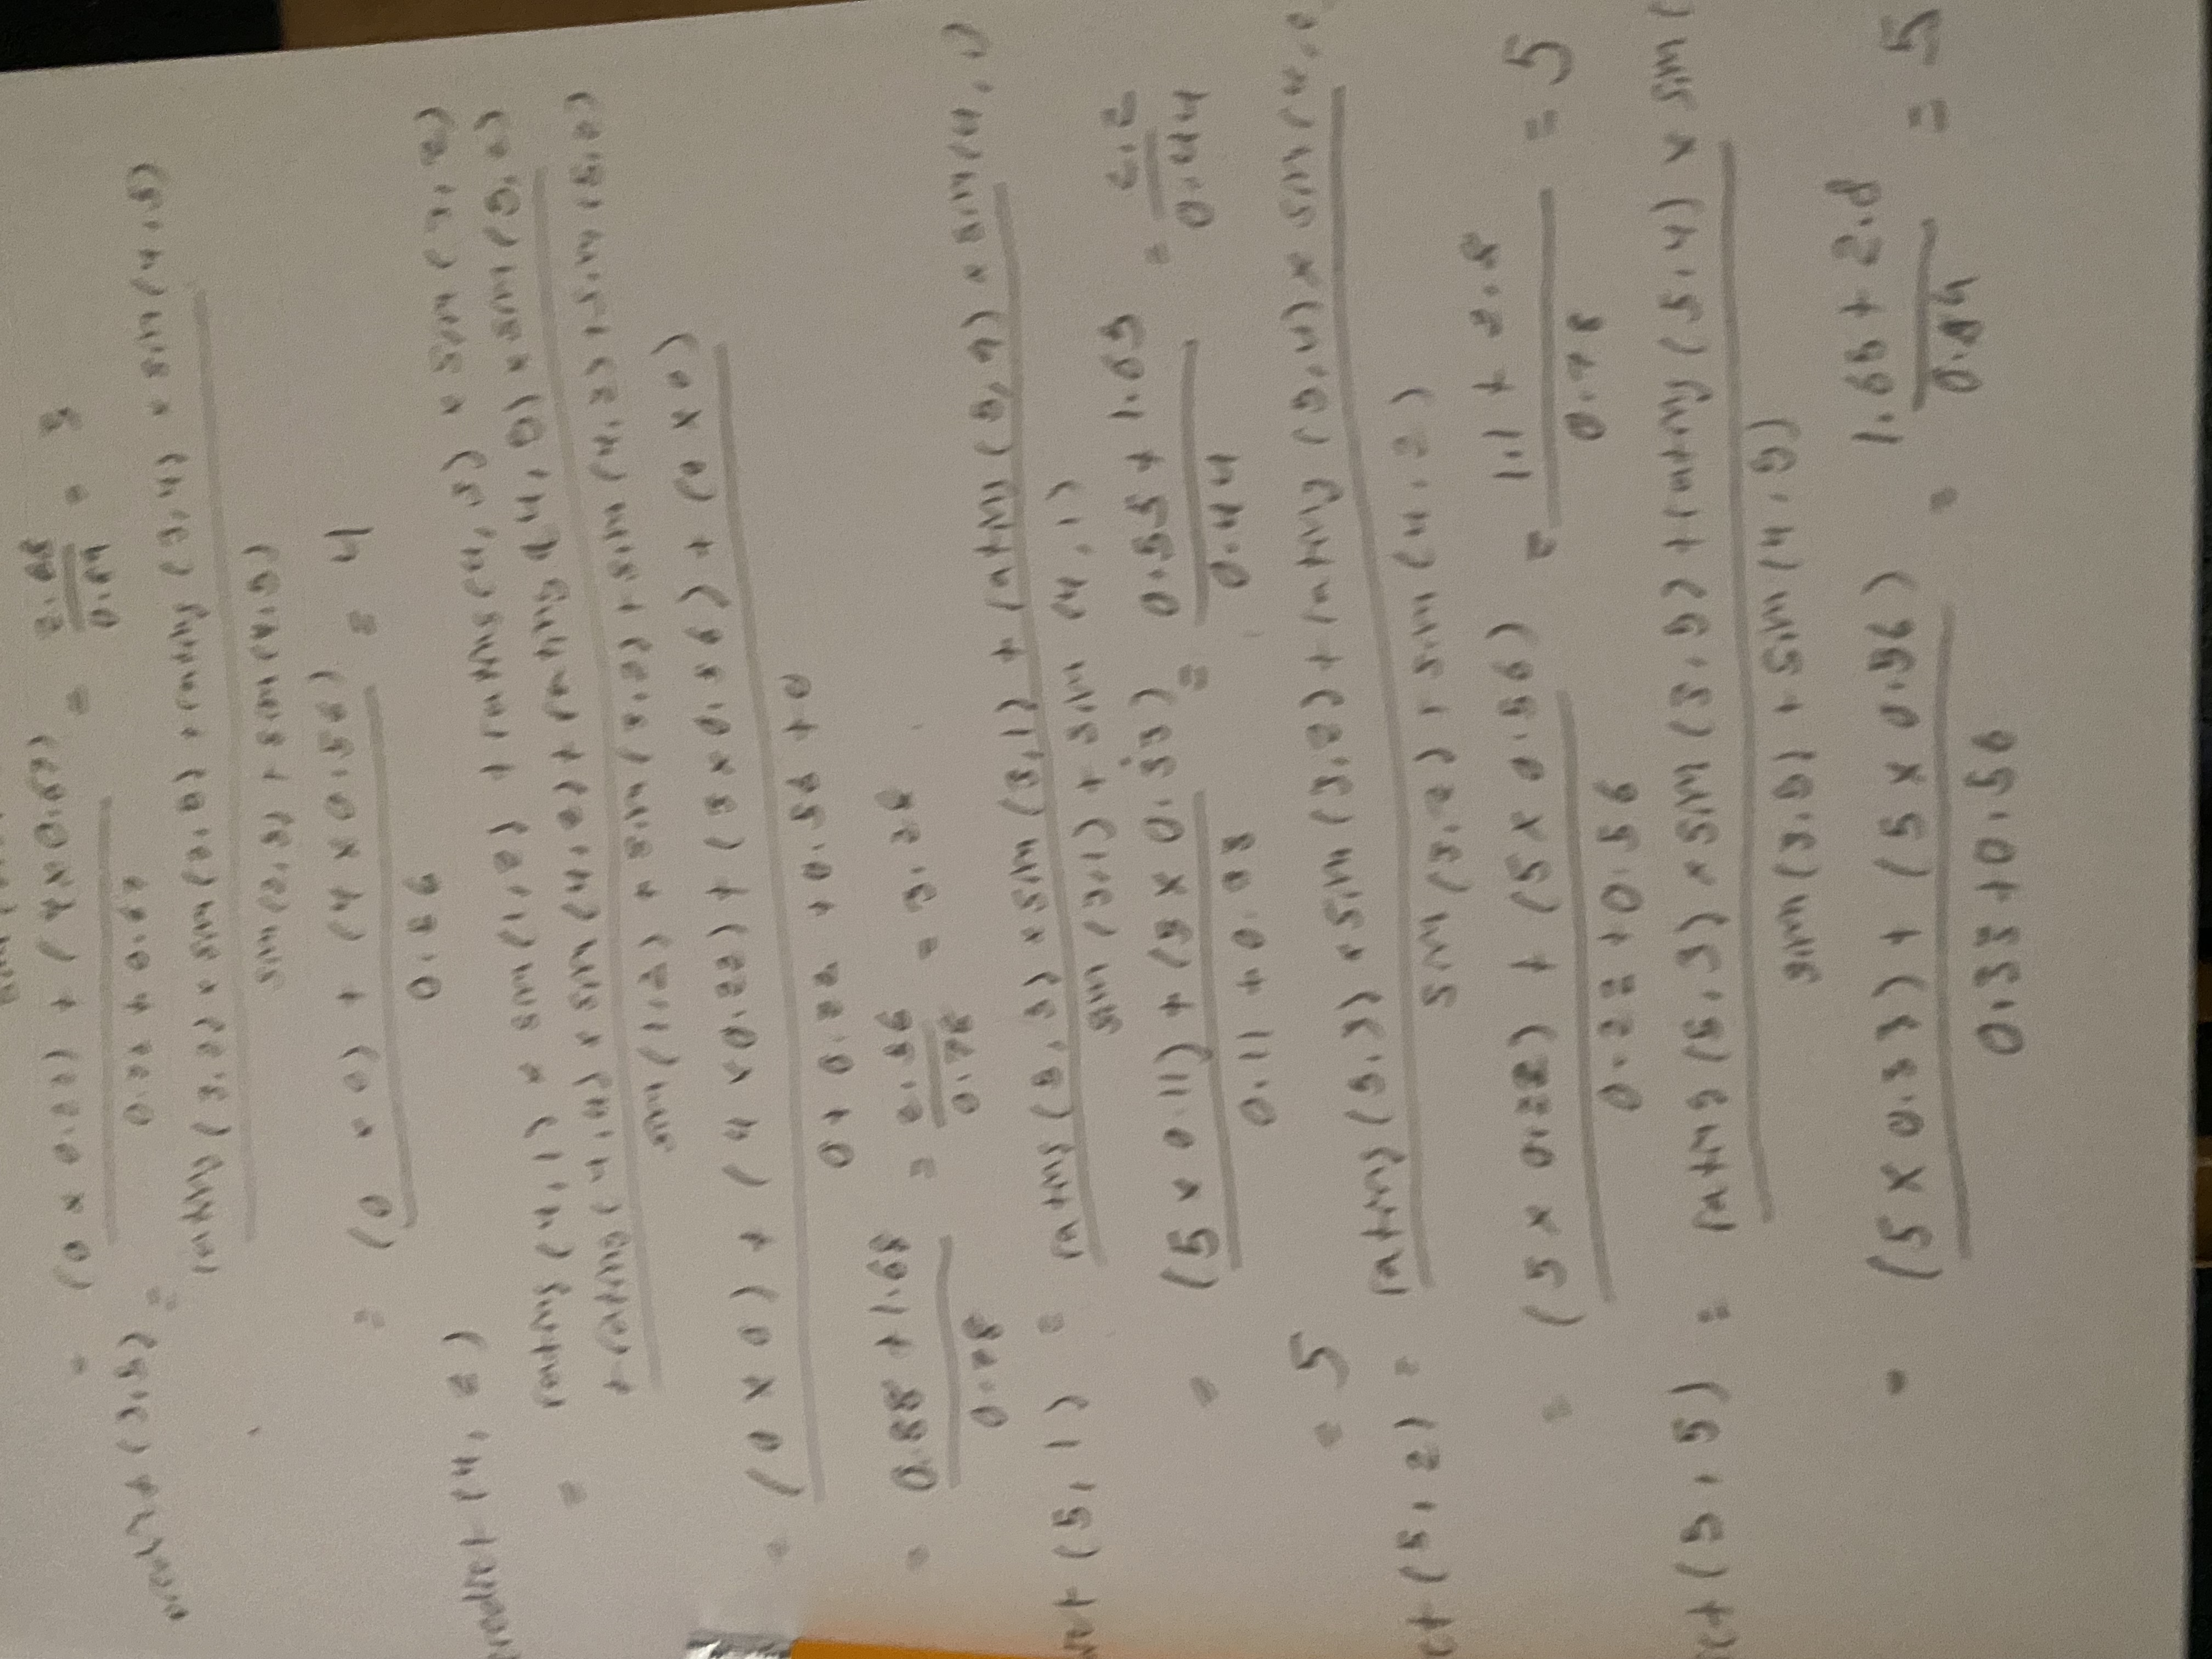 = (0 × 0.22) + (4 × 0.67) / 0.22 + 0.67 = 2.68 / 0.89 = 3
predict (3,5) = rating (3,2) × sim (2,5) + rating (3,4) × sim (4,5)
sim (2,5) + sim (4,5)
= (0 × 0) + (4 × 0.56) / 0.56 = 4
predict (4, 2)
= rating (4,1) × sim (1,2) + rating (4,3) × sim (3,2)
+ rating (4,4) × sim (4,2) + rating (4,5) × sim (5,2)
sim (1,2) + sim (3,2) + sim (4,2) + sim (5,2)
= (0 × 0) + (4 × 0.22) + (3 × 0.56) + (0 × 0)
0 + 0.22 + 0.56 + 0
= 0.88 + 1.68 / 0.78 = 2.56 / 0.78 = 3.28
(5, 1) = rating (5,3) × sim (3,1) + rating (5,4) × sim (4,1)
sim (3,1) + sim (4,1)
= (5 × 0.11) + (5 × 0.33) / 0.11 + 0.33 = 0.55 + 1.65 / 0.44 = 2.2 / 0.44
= 5
(5, 2) = rating (5,3) × sim (3,2) + rating (5,4) × sim (4,
sim (3,2) + sim (4,2)
= (5 × 0.22) + (5 × 0.56) / 0.22 + 0.56 = 1.1 + 2.8 / 0.78 = 5
(5, 5) = rating (5,3) × sim (3,5) + rating (5,4) × sim (
sim (3,5) + sim (4,5)
= (5 × 0.33) + (5 × 0.56) / 0.33 + 0.56 = 1.65 + 2.8 / = 5